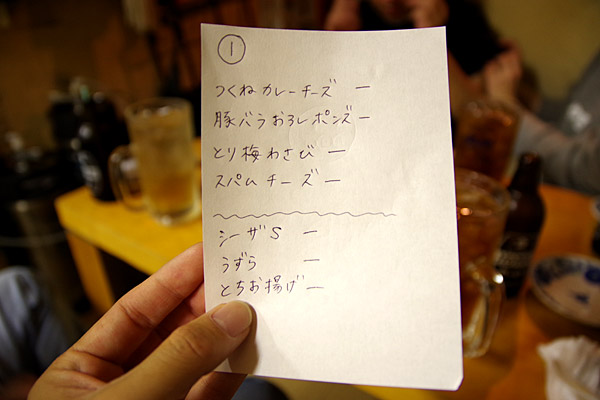 ①
つくねカレーチーズ 一
豚バラおろしポンズ 一
とり梅わさび 一
スパムチーズ 一
シーザS 一
うずら 一
とちお揚げ 一